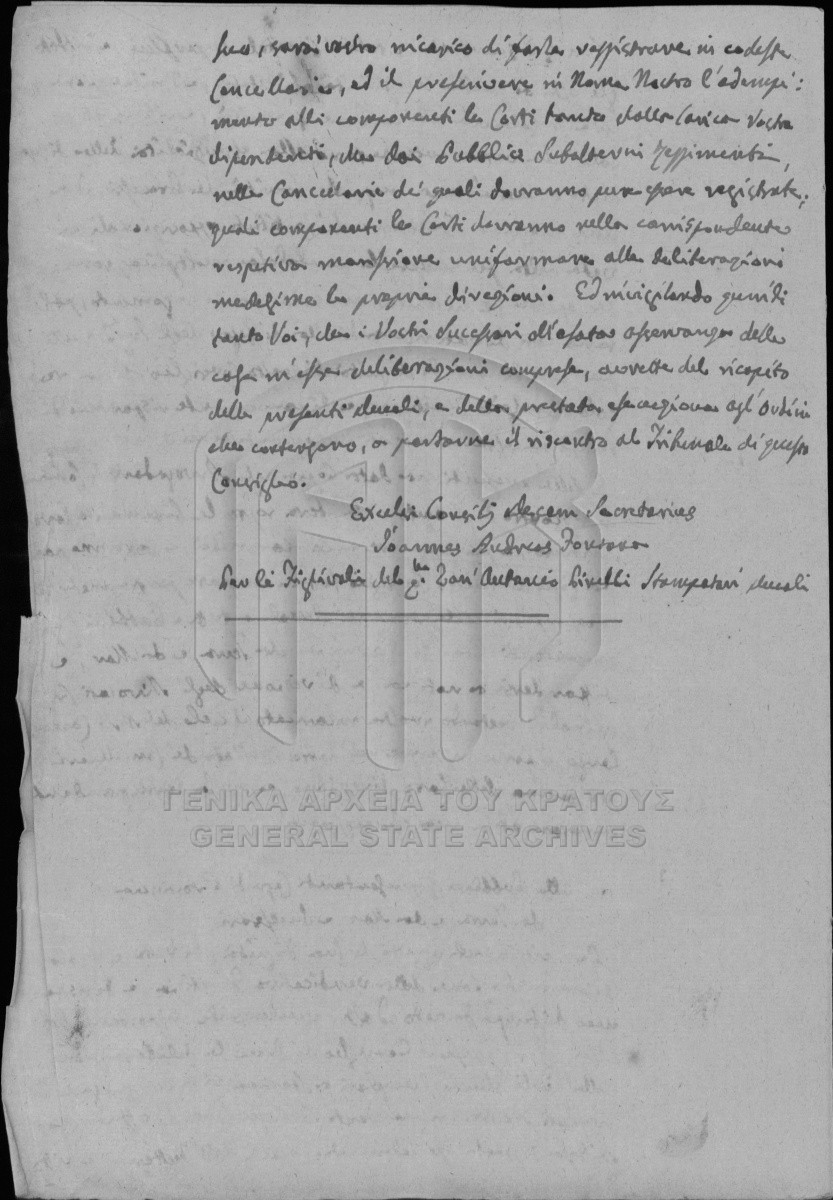 suo, sarà vostro incarico di farle reggistrare in codesta
Cancellaria, ed il prescrivere in Nome Nostro l'adempi:
mento alli componenti le Corti tanto dalla Carica Vostra
dipendenti, che dai Pubblici Subalterni Reggimenti,
nelle Cancellarie de quali dovranno pure esser registrate;
quali componenti le Corti dovranno nella corrispondente
respetiva mansione uniformare alle deliberazioni
medesime le proprie direzioni. Ed invigilando quindi
tanto Voi, che i Vostri Successori all'esatta osservanza delle
cose in esse deliberazioni comprese, averete del ricapito
delle presenti ducali, e della prestata esecuzione agl'Ordini
che contengono, a portarne il riscontro al Tribunale di questo
Consiglio.
Excelsi Consilij Decem Secretarius
Ioannes Andreas Fontana
Per li Figliuoli del qm. Zan' Antonio Pinelli Stampatori ducali
ΓΕΝΙΚΑ ΑΡΧΕΙΑ ΤΟΥ ΚΡΑΤΟΥΣ
GENERAL STATE ARCHIVES